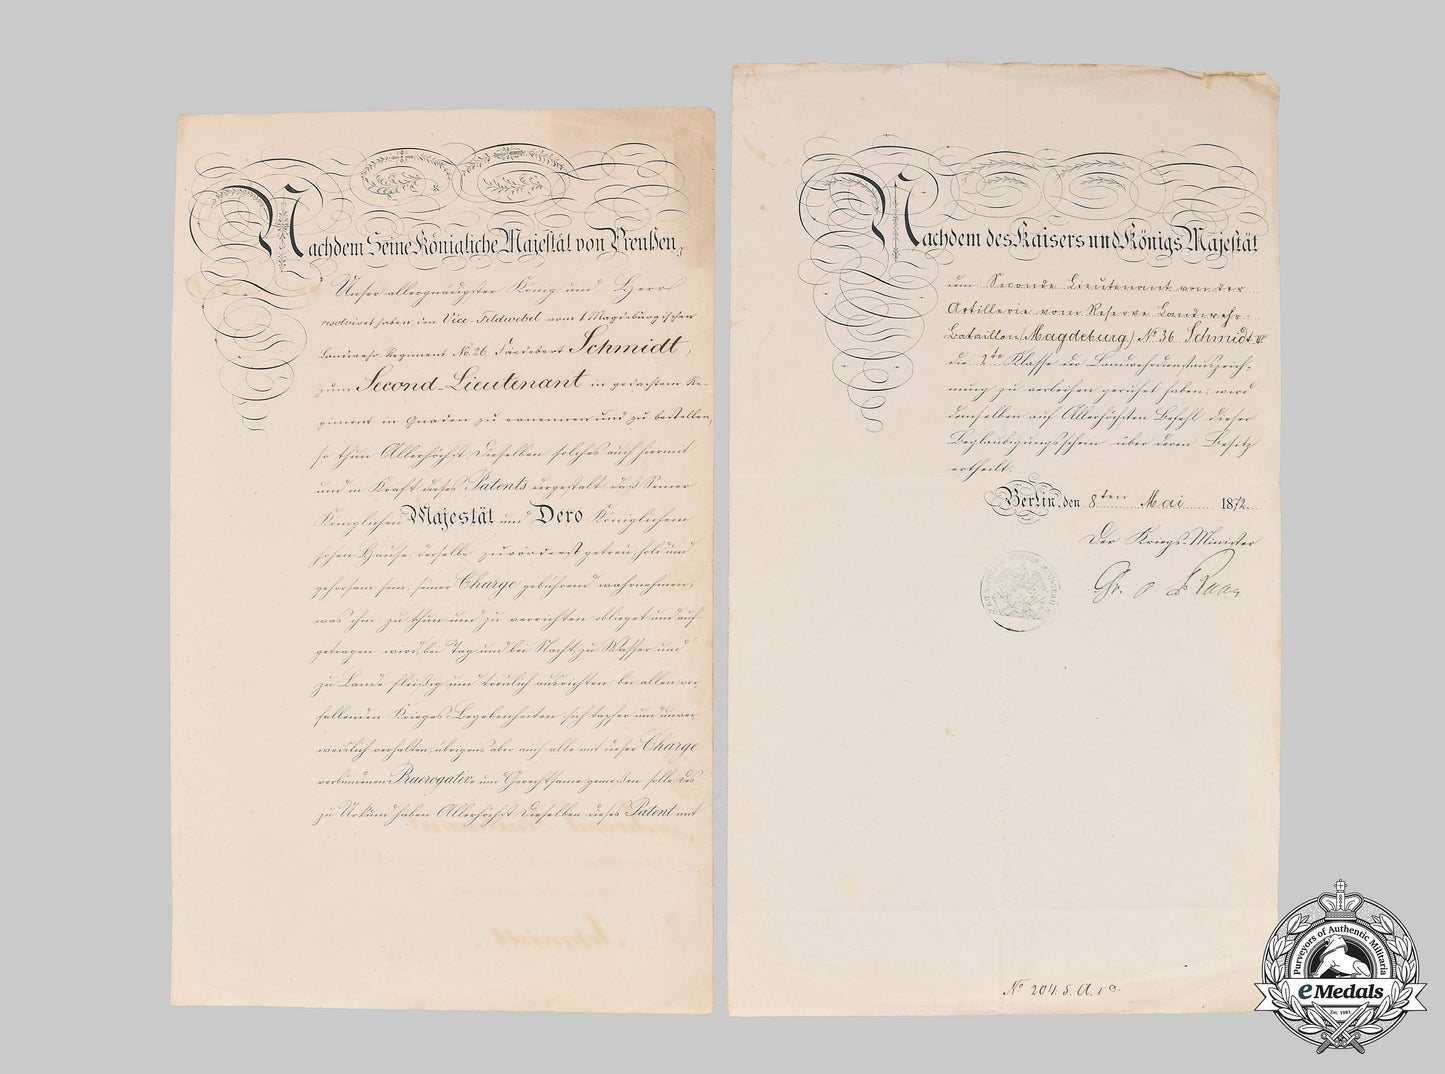 Nachdem Seine Königliche Majestät von Preußen,
Unser allergnädigster König und Herr
resolviret haben, den Vice-Feldwebel vom 1 Magdeburgischen
Landwehr, Regiment No. 26, Fredebert Schmidt,
zum Second-Lieutenant in gedachtem Re-
giment in Gnaden zu ernennen und zu bestellen,
so thun Allerhöchst Dieselben solches auch hiermit
und in Kraft dieses Patents dergestalt: daß Seiner
Königlichen Majestät und Dero Königlichem
hohen Hause, derselbe zuvörderst getreu, hold und
gehorsam sein, seiner Charge gebührend wahrnehmen,
was ihm zu thun und zu verrichten oblieget und auf-
getragen wird, bei Tag und bei Nacht, zu Wasser und
zu Lande fleißig und treulich ausrichten, bei allen vor-
fallenden Krieges-Begebenheiten sich tapfer und unver-
weislich verhalten, übrigens aber auch alle mit dieser Charge
verbundenen Praerogative und Gerechtsame genießen solle. Des
zu Urkund haben Allerhöchst Dieselben dieses Patent mit
Schmidt
Nachdem des Kaisers und Königs Majestät
dem Seconde Lieutenant von der
Artillerie vom Reserve Landwehr-
Bataillon (Magdeburg) No 36 Schmidt
die 2te Klasse der Landwehrdienstauszeich-
nung zu verleihen geruhet haben, wird
demselben auf Allerhöchsten Befehl dieser
Beglaubigungsschein über deren Besitz
ertheilt.
Berlin, den 8ten Mai 1872.
Der Kriegs-Minister
Gr. v Roon
No 204. 5. A. 1a.
Purveyors of Authentic Militaria
eMedals
Est. 1981